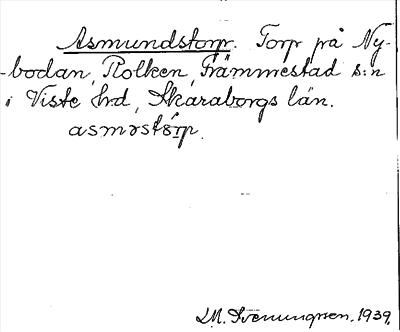 Asmundstorp. Torp på Ny-
bodan, Rolken, Främmestad s:n
i Viste hrd, Skaraborgs län.
asməstɔrp.
M. Svenungsen. 1939.